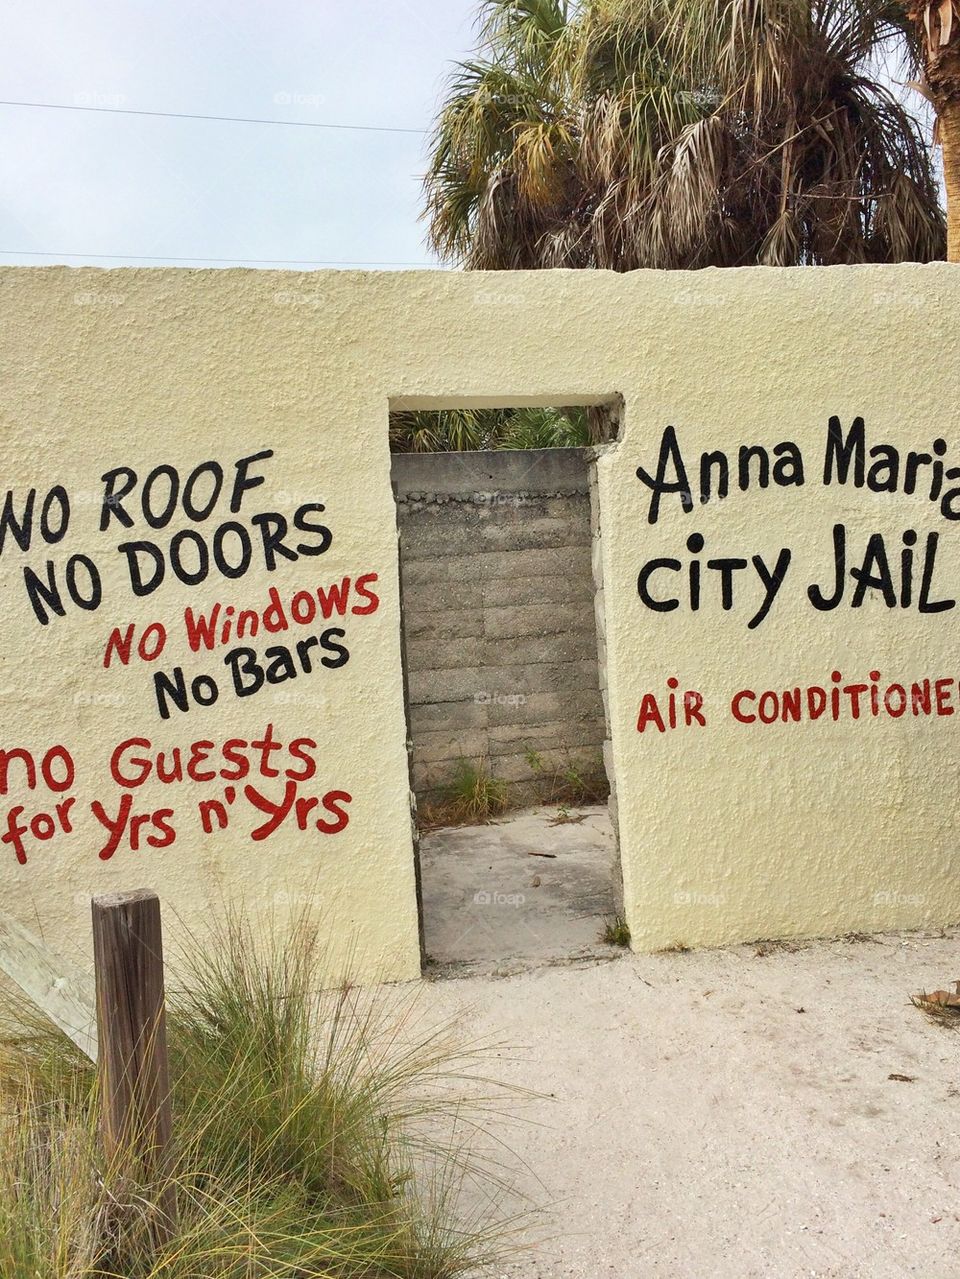 NO ROOF
NO DOORS
NO Windows
No Bars
no Guests
for Yrs n' Yrs
Anna Maria
city JAiL
AiR CONDiTiONE
foap